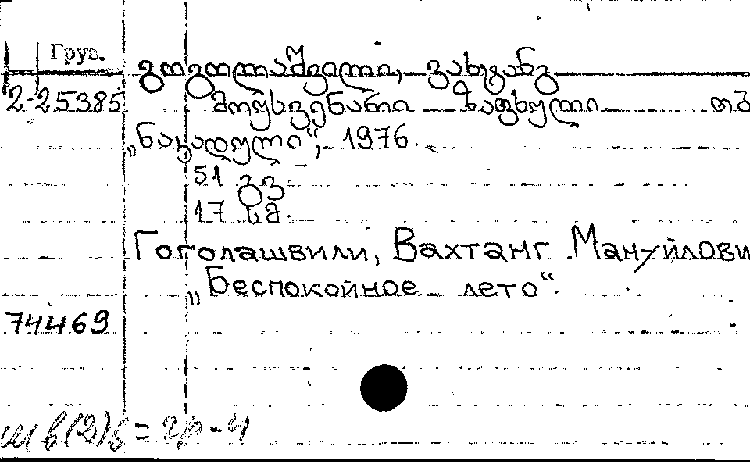 Груз.
გოგოლაშვილი, ვახტანგ
2-25385 მოუსვენარი ზაფხული თბ
„ნაკადული“, 1976
51 გვ
17 სმ
Гоголашвили, Вахтанг Мануйлови
„Беспокойное лето“.
74469